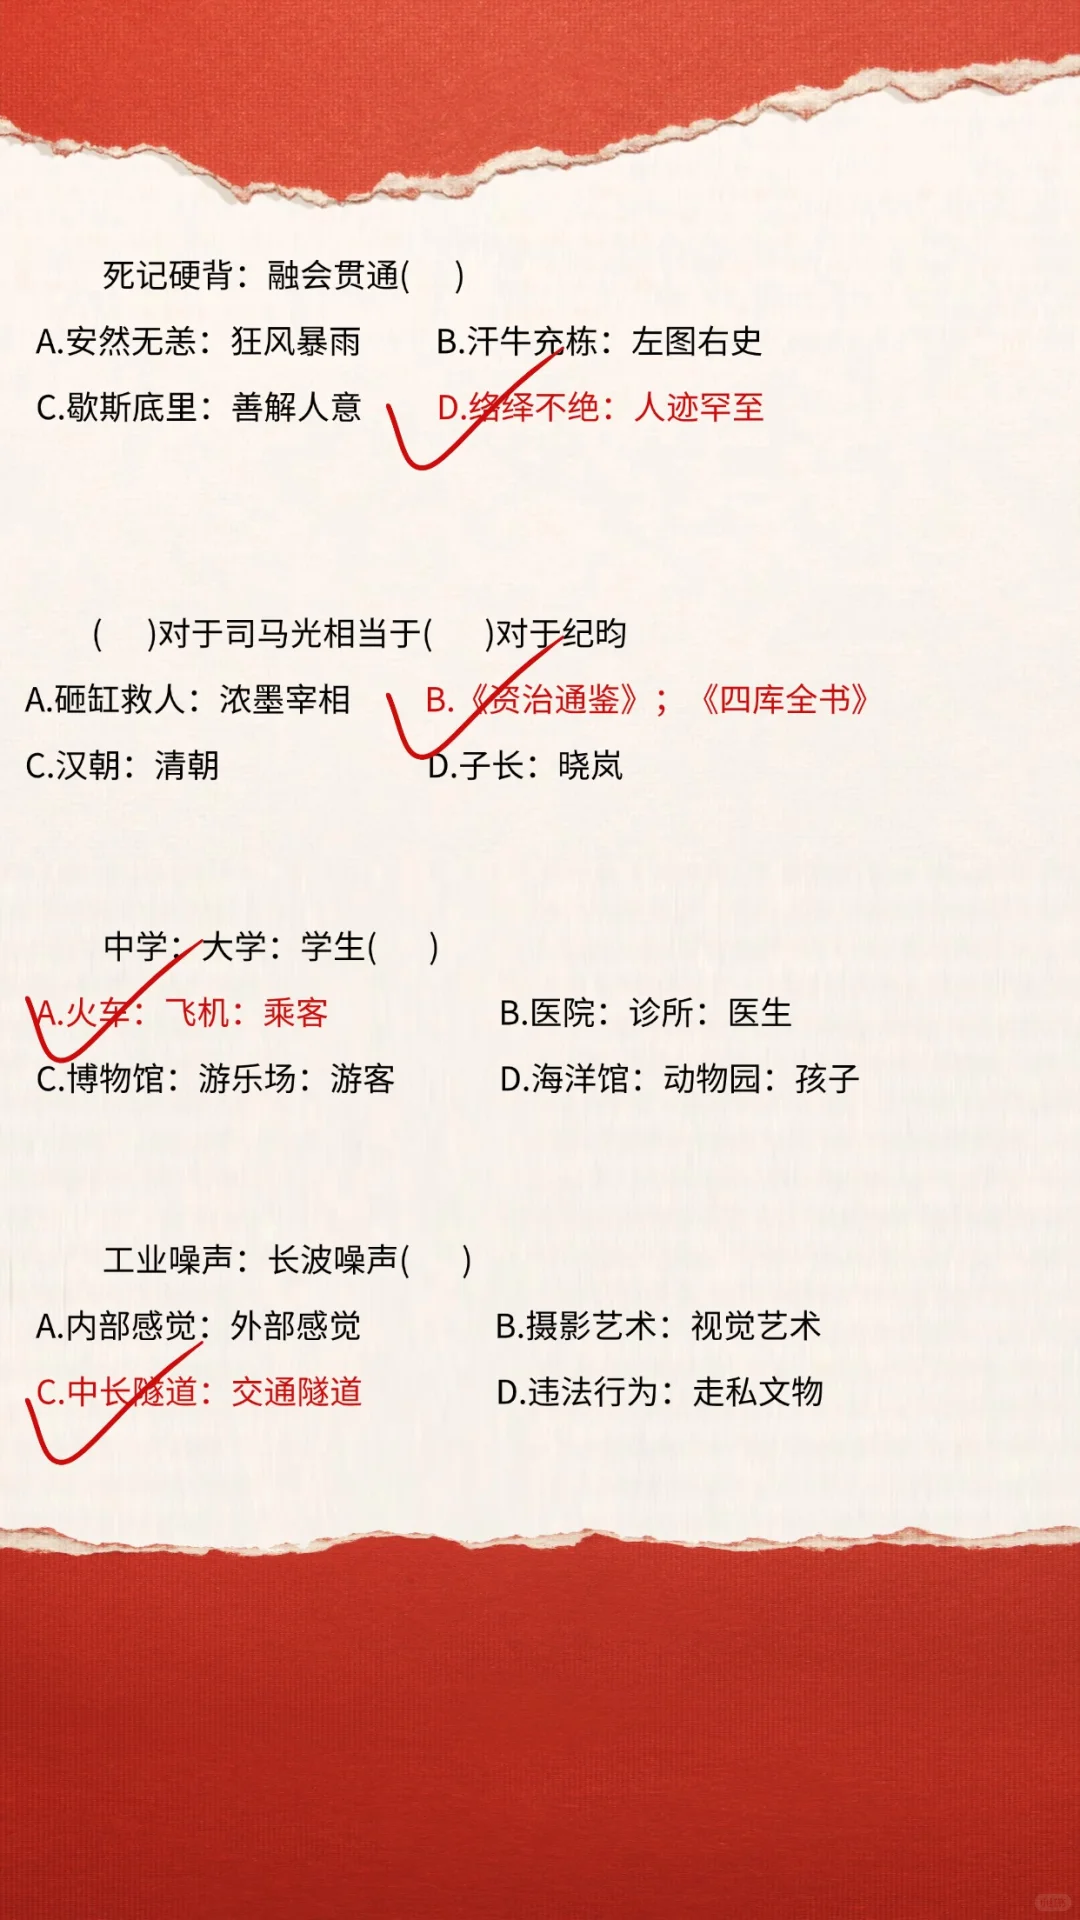 死记硬背：融会贯通(   )
A.安然无恙：狂风暴雨 B.汗牛充栋：左图右史
C.歇斯底里：善解人意 D.络绎不绝：人迹罕至
(   )对于司马光相当于(   )对于纪昀
A.砸缸救人：浓墨宰相 B.《资治通鉴》；《四库全书》
C.汉朝：清朝 D.子长：晓岚
中学：大学：学生(   )
A.火车：飞机：乘客 B.医院：诊所：医生
C.博物馆：游乐场：游客 D.海洋馆：动物园：孩子
工业噪声：长波噪声(   )
A.内部感觉：外部感觉 B.摄影艺术：视觉艺术
C.中长隧道：交通隧道 D.违法行为：走私文物